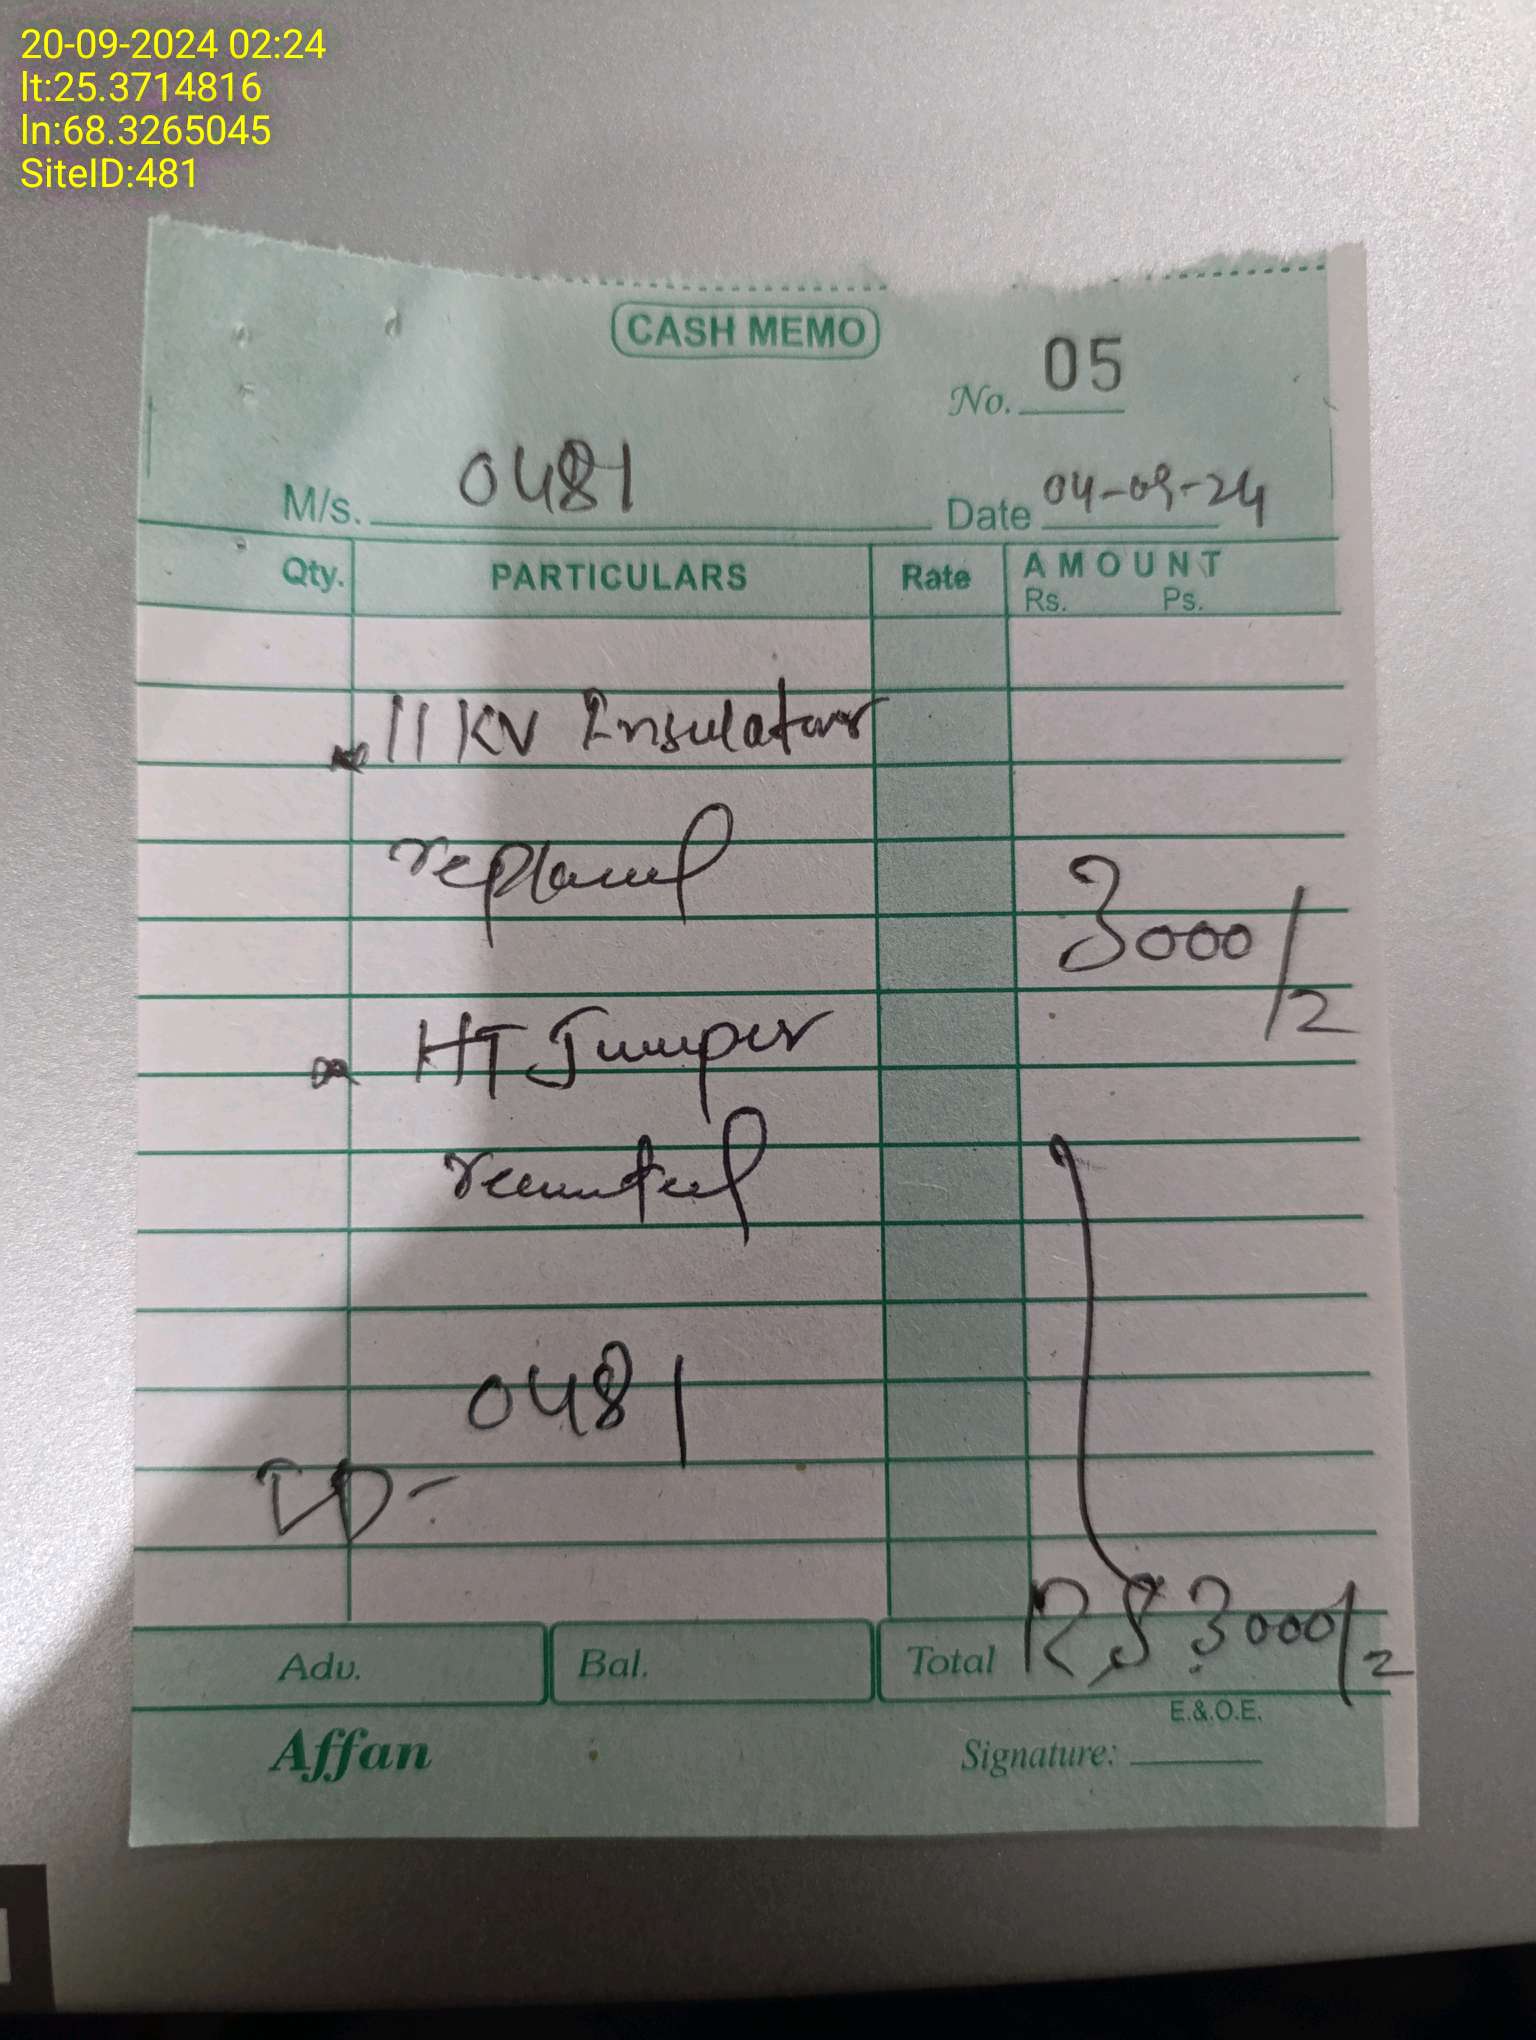 20-09-2024 02:24
lt:25.3714816
ln:68.3265045
SiteID:481
CASH MEMO
No. 05
M/s. 0481
Date 04-09-24
Qty. PARTICULARS Rate AMOUNT
Rs. Ps.
11 KV Insulator
replaced
3000/2
HT Jumper
0481
ID-
Adv. Bal. Total RS 3000/2
E.&.O.E.
Affan Signature: